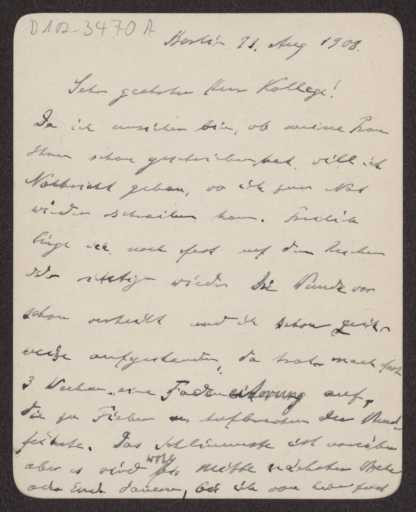 D 102-3470 A
Berlin 21. Aug 1908.
Sehr geehrter Herr Kollege!
Da ich unsicher bin, ob meine Frau
Ihnen schon geschrieben hat, will ich
Nachricht geben, wo ich zur Not
wieder schreiben kann. Freilich
liege ich noch fest auf dem Rücken
oder richtiger wieder. Die Wunde war
schon verheilt und ich schon
weise aufgestanden, da trat nach fast
3 Wochen eine Fadeneiterung auf,
die zu Fieber u. Aufbrechen der Wund
führte. Das Schlimmste ist vorüber
aber es wird wohl bis Mitte nächster Woche
oder Ende dauern, bis ich von hier fort